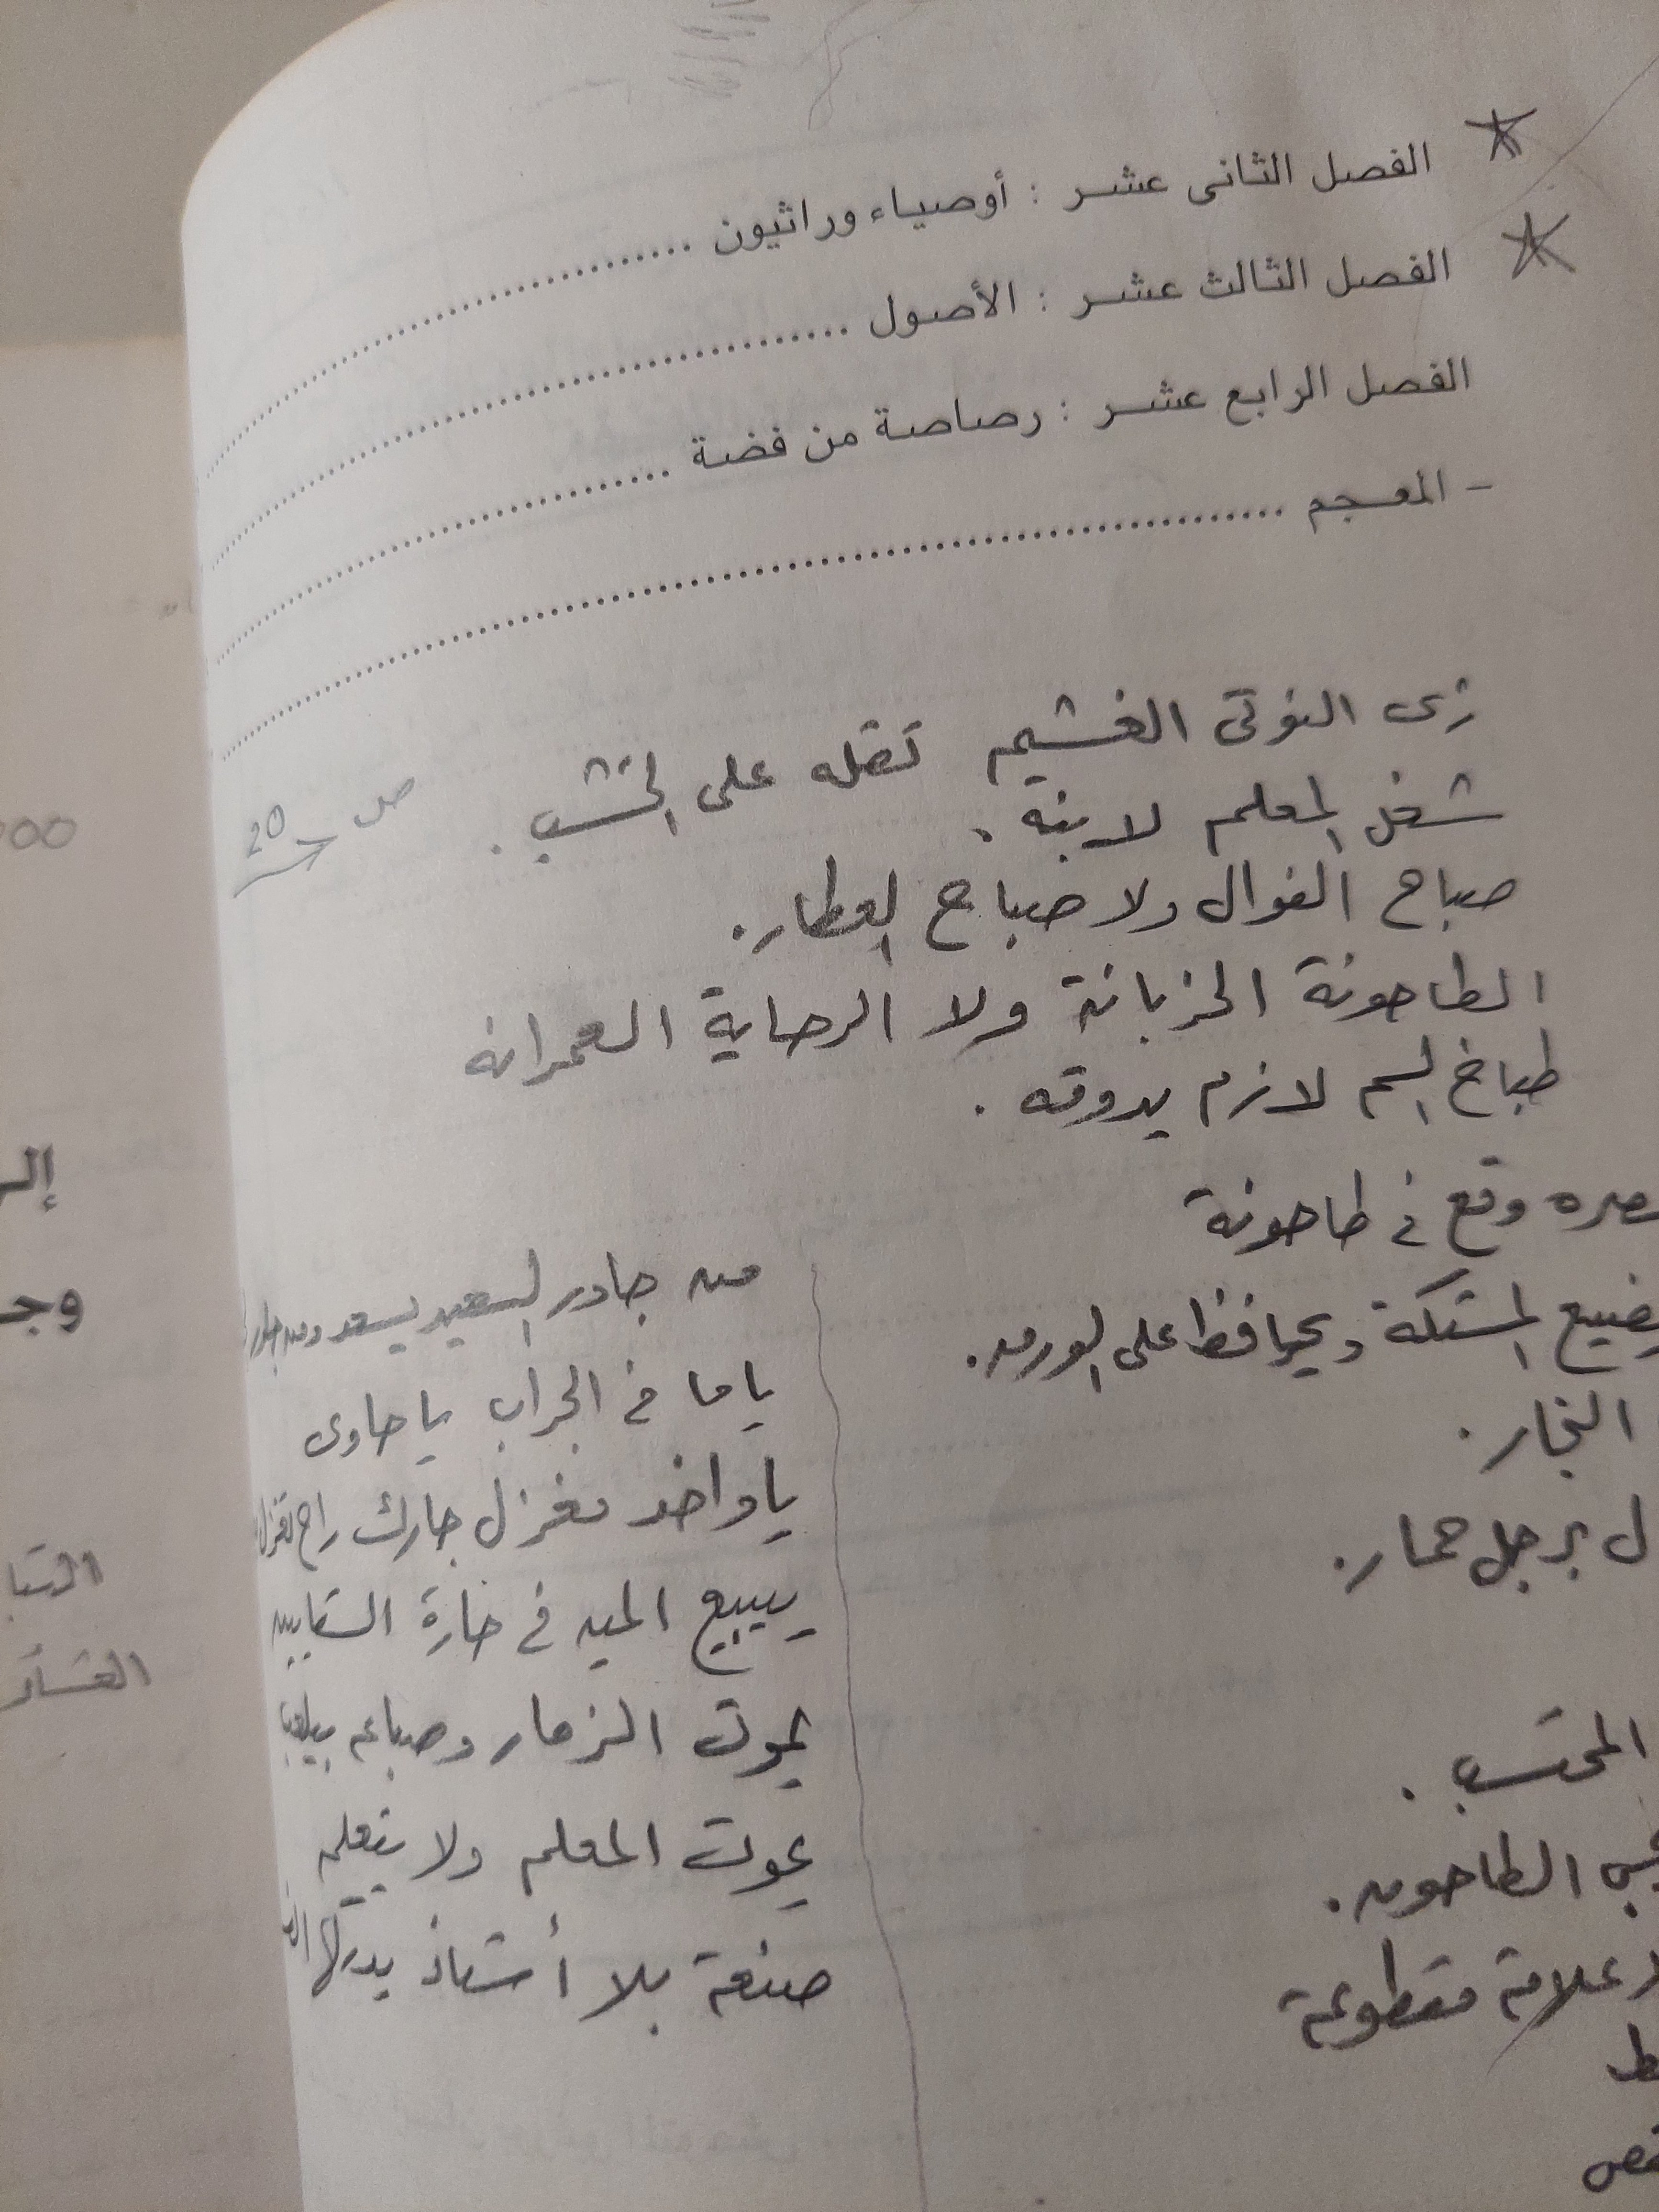 الفصل الثانى عشر : أوصياء وراثيون
الفصل الثالث عشر : الأصول
الفصل الرابع عشر : رصاصة من فضة
- المعجم
زى النوتى الغشيم تقله على الخشب .
ص 20
شغل المعلم لابنه .
صباح الفوال ولا صباح العطار .
الطاحونة الخربانة ولا الرحاية العمرانه
طباخ السم لازم يدوقه .
وقع فى طاحونة
يضيع المستكة ويحافظ على الورق .
النجار .
ل برجل حمار .
المحتسب .
الطاحون .
علامة مقطوعة
ط
من جاور السعيد يسعد ومن جاور
ياما فى الجراب ياحاوى
ياواخد مغزل جارك راح تغزل
يبيع الميه فى حارة السقايين
يموت الزمار وصباعه بيلعب
يموت المعلم ولا يتعلم
صنعة بلا أستاذ يدركها
إلـ
وجـ
00